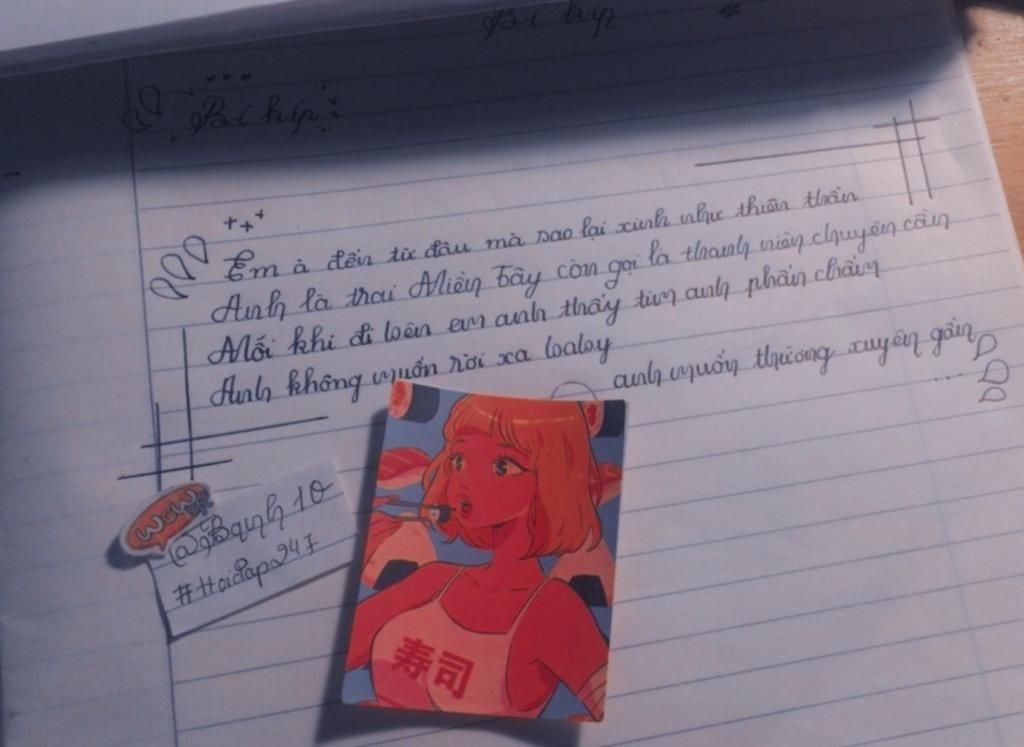 Bí kíp
Bí kíp
Em à đến từ đâu mà sao lại xinh như thiên thần
Anh là trai Miền Tây còn gọi là thanh niên chuyên cần
Mỗi khi đi bên em anh thấy tim anh phấn chấn
Anh không muốn rời xa baby anh muốn thường xuyên gần
WOW
#HoiĐap247
寿司